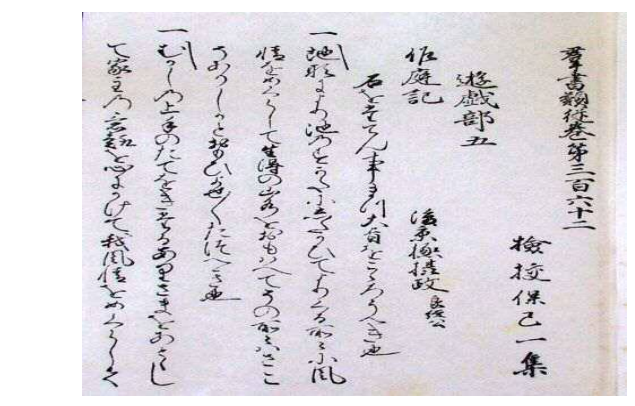 羣書類從巻第三百六十二
檢挍保己一集
遊戯部五
作庭記　後京極攝政良経公
石をたてん事まつ大旨をこゝろうへき也
一地形により池のすかたにしたかひてよりくる所々に風
情をめくらして生得の山水をおもはへてその所々はさこ
そありしかとおもひよせ〳〵たつへき也
一むかしの上手のたてをきたるありさまをあとゝし
て家主の意趣を心にかけて我風情をめくらして